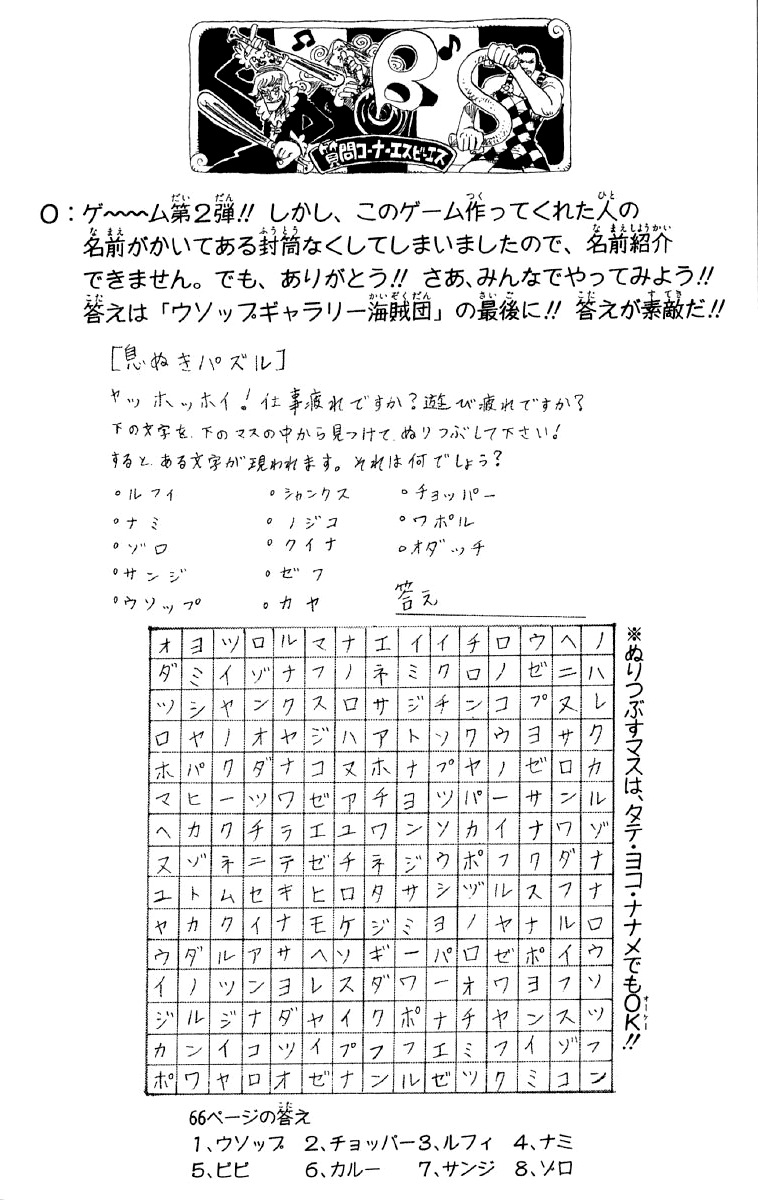 質問コーナー・エスビーエス
O：ゲ〜〜〜ム第2弾!! しかし、このゲーム作ってくれた人の
名前がかいてある封筒なくしてしまいましたので、名前紹介
できません。でも、ありがとう!! さあ、みんなでやってみよう!!
答えは「ウソップギャラリー海賊団」の最後に!! 答えが素敵だ!!
[息ぬきパズル]
ヤッホッホイ!仕事疲れですか?遊び疲れですか?
下の文字を、下のマスの中から見つけて、ぬりつぶして下さい!
すると、ある文字が現われます。それは何でしょう?
・ルフィ ・シャンクス ・チョッパー
・ナミ ・ノジコ ・ワポル
・ゾロ ・クイナ ・オダッチ
・サンジ ・ゼフ
・ウソップ ・カヤ 答え
オヨツロルマナエイイチロウヘノ
ダミイゾナフノネミクロノゼニハ
ツシャンクスロサジチンコプヌレ
ロヤノオヤジハアトソクウヨサク
ホパクダナコヌホナプヤノゼロカ
マヒーツワゼアチョツパーサンル
ヘカクチラエユワンソカイナワゾ
ヌゾネニテゼチネジウポフクダナ
ユトムセキヒロタサシヅルスフナ
ヤカクイナモケジミヨノヤナルロ
ウダルアサヘソギーパロゼポイウ
イノツンヨレスダワーオワヨフソ
ジルジナダヤイクポナチャンスツ
カンイコツイプフフエミフイゾフ
ポワヤロオゼナンルゼツクミコン
※ぬりつぶすマスは、タテ・ヨコ・ナナメでもOK!!
66ページの答え
1、ウソップ 2、チョッパー 3、ルフィ 4、ナミ
5、ビビ 6、カルー 7、サンジ 8、ゾロ